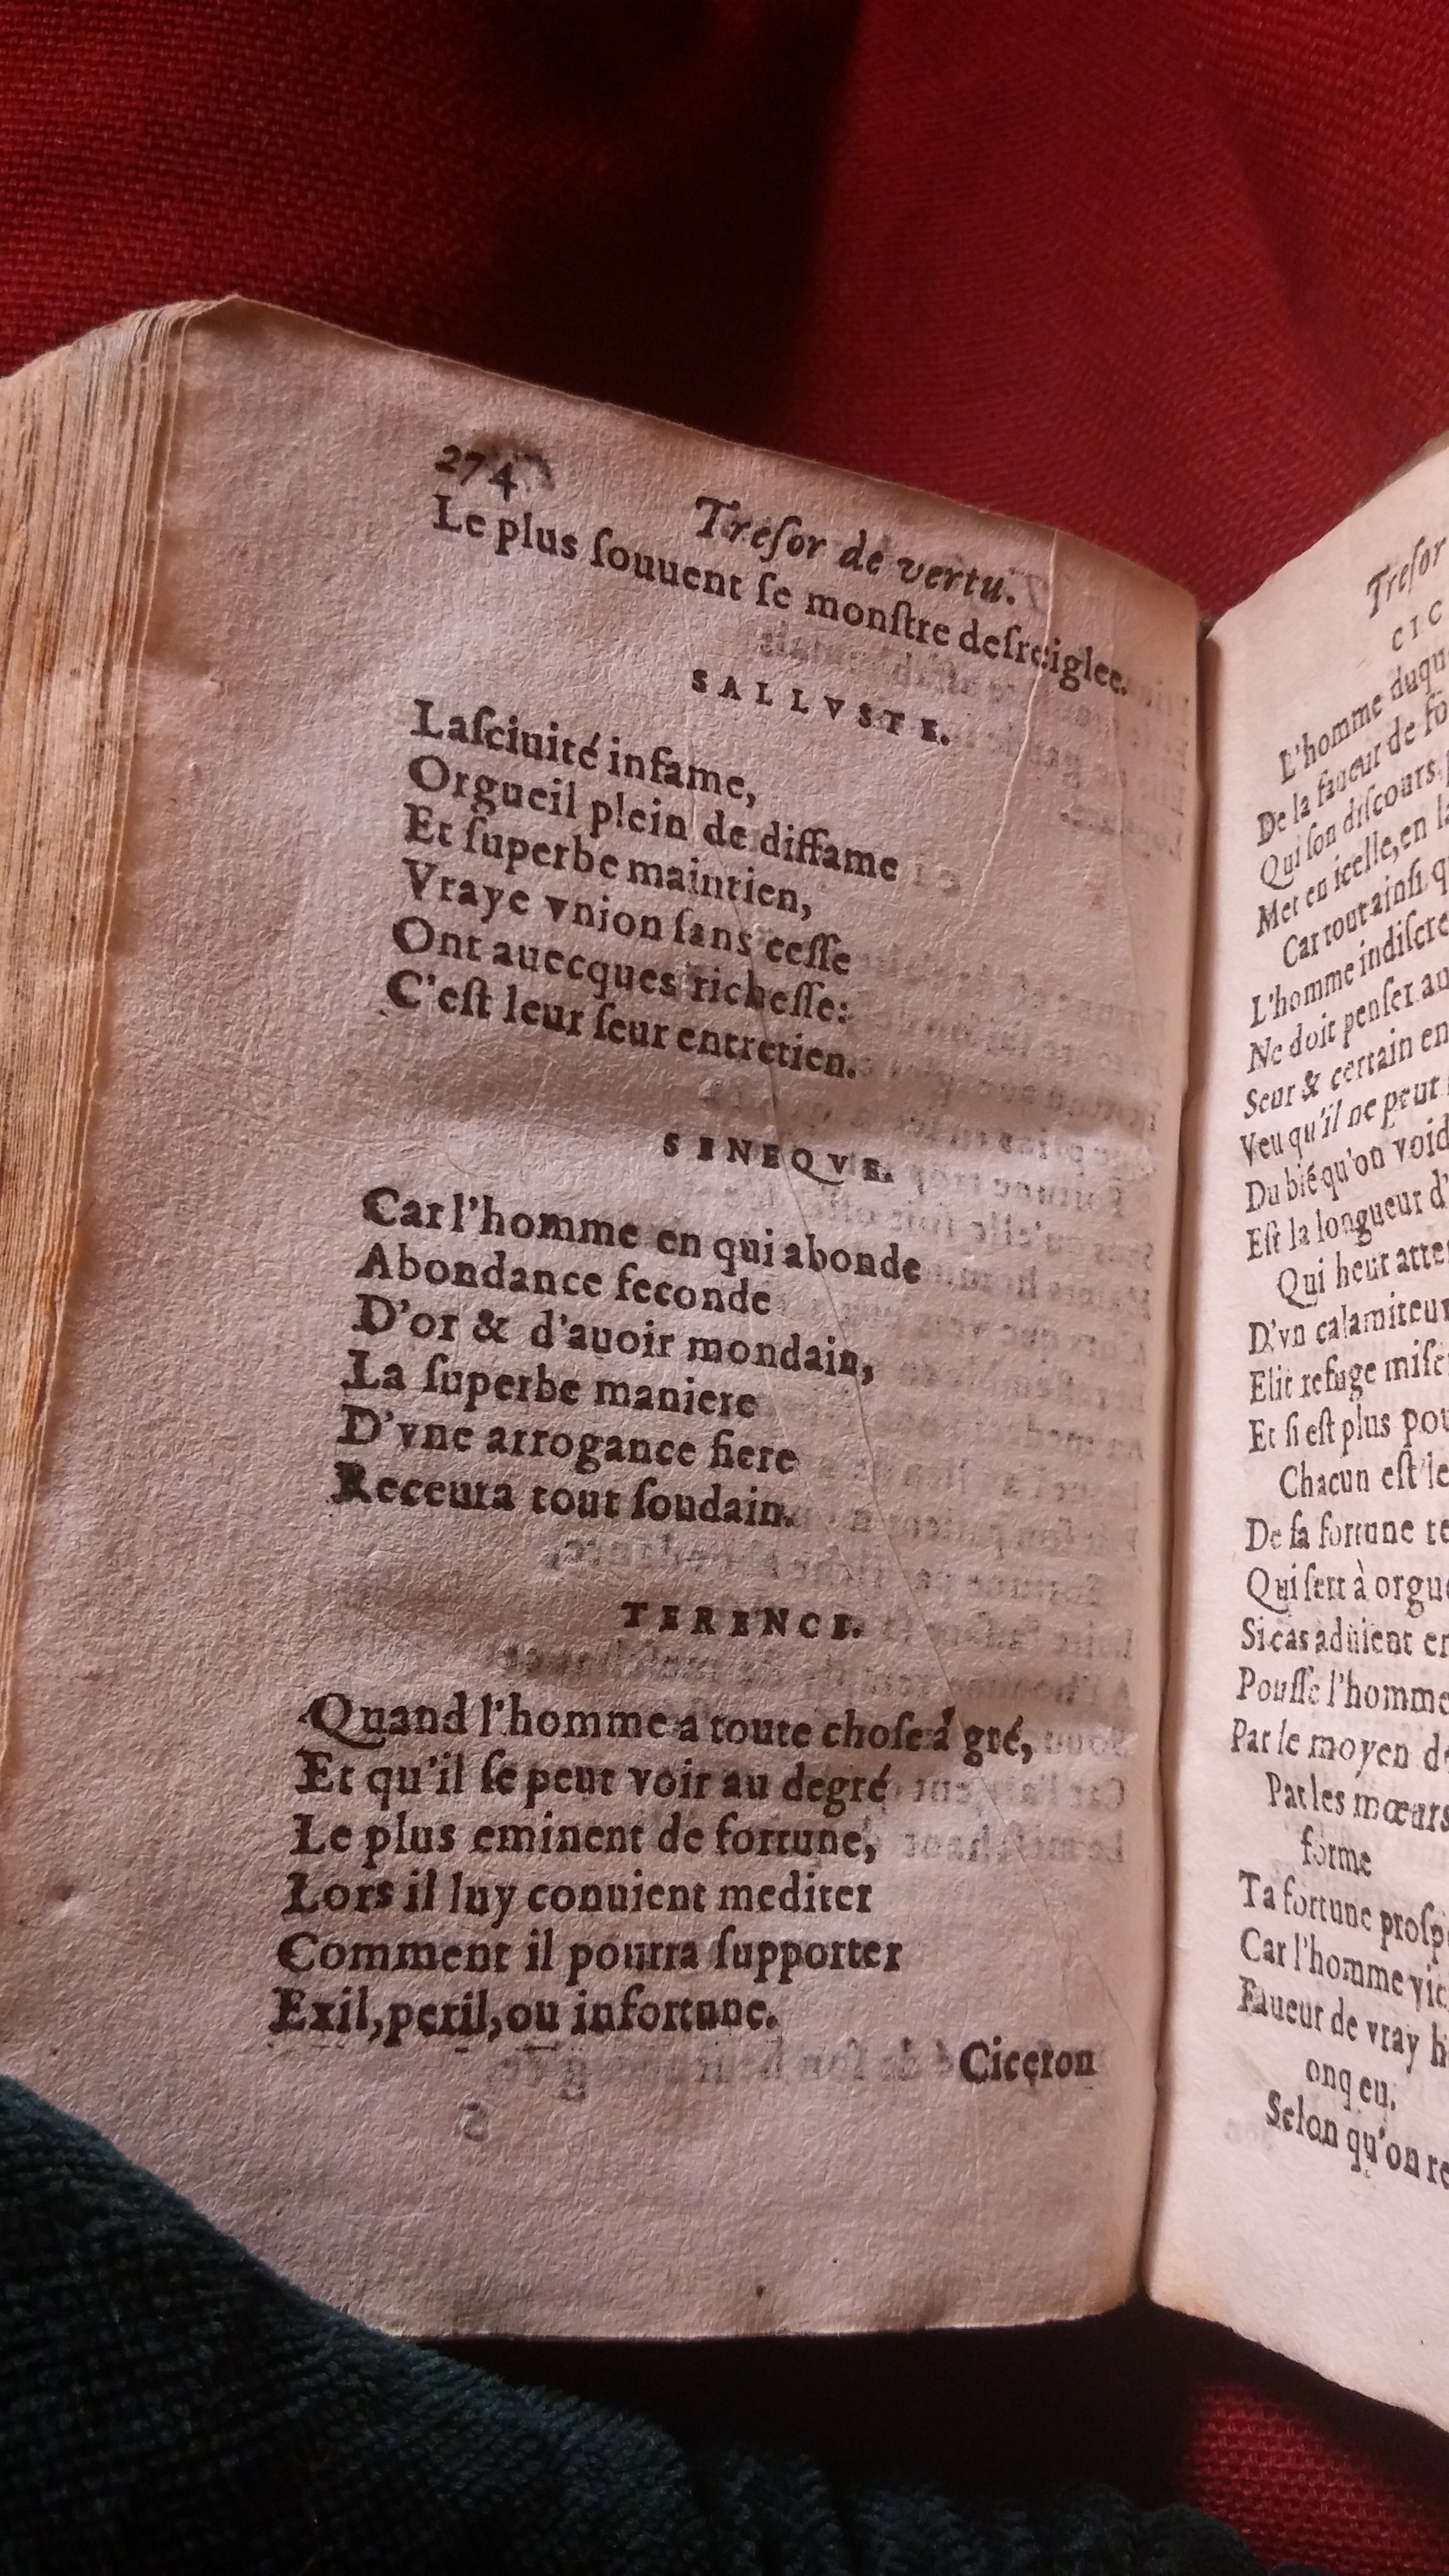 274
Treſor de vertu.
Le plus ſouuent ſe monſtre deſreiglee.
SALLVSTE.
Laſciuité infame,
Orgueil plein de diffame
Et ſuperbe maintien,
Vraye vnion ſans ceſſe
Ont auecques richeſſe:
C'eſt leur ſeur entretien.
SENEQVE.
Car l'homme en qui abonde
Abondance feconde
D'or & d'auoir mondain,
La ſuperbe maniere
D'vne arrogance fiere
Receura tout ſoudain.
TERENCE.
Quand l'homme a toute choſe à gré,
Et qu'il ſe peut voir au degré
Le plus eminent de fortune,
Lors il luy conuient mediter
Comment il pourra ſupporter
Exil, peril, ou infortune.
Ciceron
Treſor
CIC
L'homme duqu
De la faueur de fo
Qui ſon diſcours,
Met en icelle, en l
Car tout ainſi q
L'homme indiſcre
Ne doit penſer au
Seur & certain en
Veu qu'il ne peut
Du bié qu'on void
Eſt la longueur d'
Qui heut atte
D'vn calamiteu
Elit refuge miſe
Et ſi eſt plus pou
Chacun eſt le
De ſa fortune te
Qui ſert à orgu
Si cas aduient e
Pouſſe l'homme
Par le moyen d
Par les mœurs
forme
Ta fortune proſp
Car l'homme vic
Faueur de vray h
onq eu.
Selon qu'on re